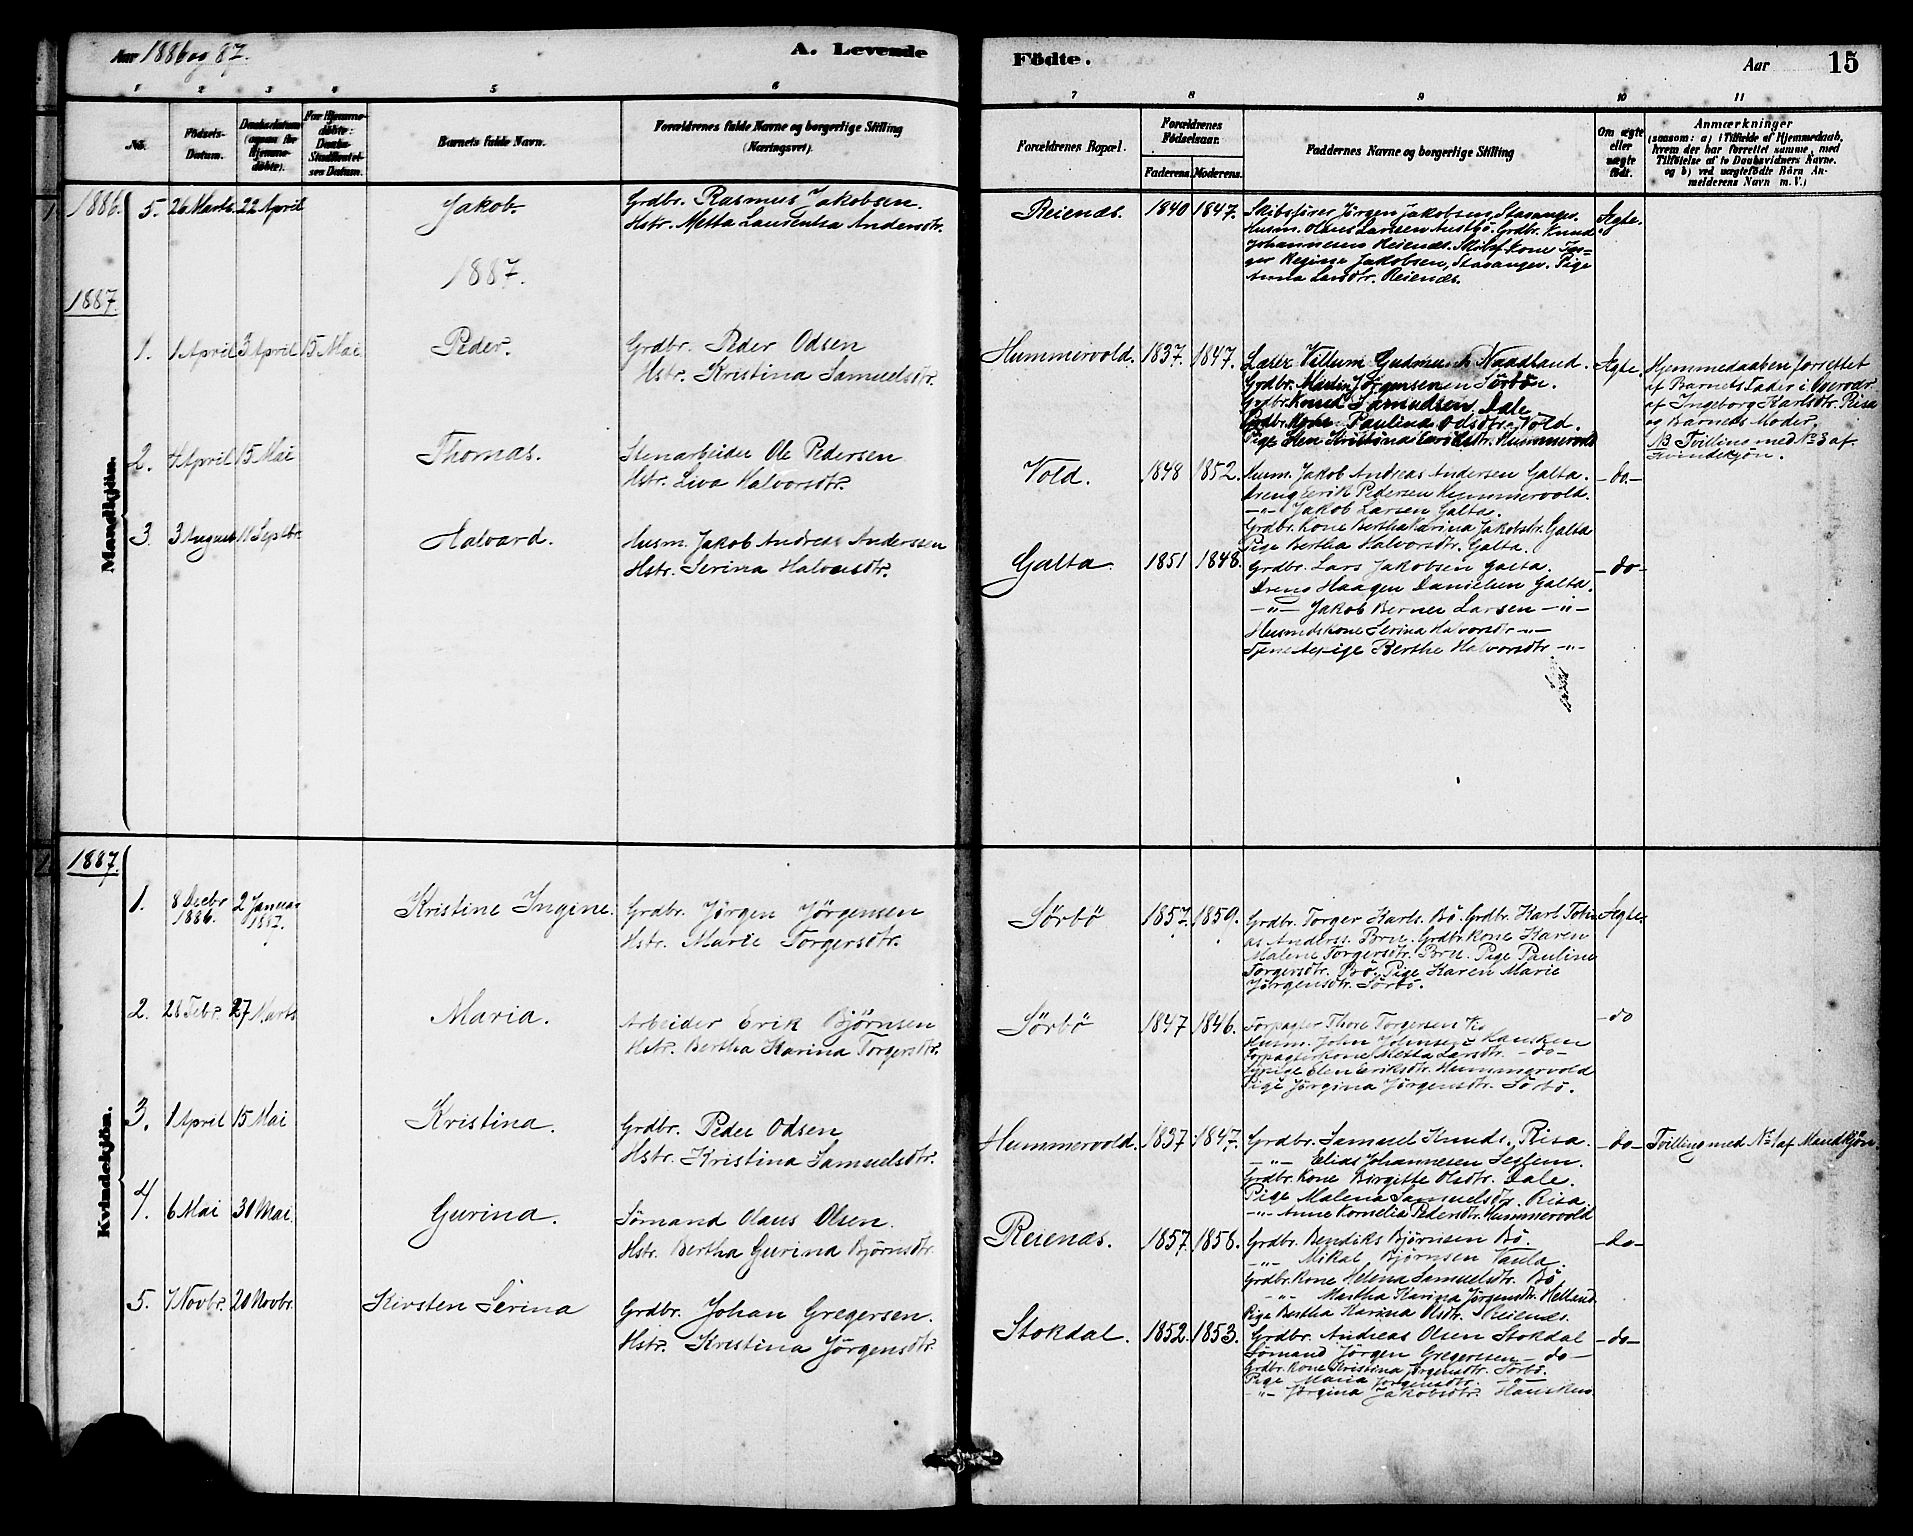 Aar 1886 og 87.
A. Levende
Födte.
Aar
15
1 2 3 4 5 6
7 8 9 10 11
No.
Födsels-
Datum.
Daabsdatum
(ogsaa for
Hjemme-
döbte).
For Hjemme-
döbte:
Daabs-
Stadfæstel-
ses Datum.
Barnets fulde Navn.
Forældrenes fulde Navne og borgerlige Stilling
(Næringsvei).
Forældrenes Bopæl.
Forældrenes
Födselsaar.
Faderens. Moderens.
Faddernes Navne og borgerlige Stilling
Om ægte
eller
uægte
födt.
Anmærkninger
(saasom: a) i Tilfælde af Hjemmedaab,
hvem der har forrettet samme, med
Tilföielse af to Daabsvidners Navne.
og b) ved uægtefödte Börn An-
melderens Navn m. V.)
Mandkjön.
1886. 5. 26 Marts 22 April Jakob.
Grdbr. Rasmus Jakobsen.
Hstr. Metta Laurentsa Andersdtr.
Reienæs. 1840 1847.
Skibsfører Jørgen Jakobsen Stavanger.
Husm. Olaus Larsen Austbö. Grdbr. Knud
Johannesen Reienæs. Skibsf. kone In-
ger Regine Jakobsen, Stavanger. Pige
Anna Larsdtr. Reienæs.
Ægte.
1887.
1887.
1. 1 April 3 April 15 Mai Peder.
Grdbr. Peder Odsen
Hstr. Kristina Samuelsdtr.
Hummervold. 1837. 1847.
Lærer Villum Gudmu Naadland.
Grdbr. Martin Jörgensen Sörbö.
Grdbr. Knud Samuelsen Dale
Grdbr. Kone Paulina Odsdtr. Vold.
Pige Elen Kristina Eriksdtr. Hummervold
Ægte.
Hjemmedaaben forrettet
af Barnets Fader i Overvær
af Ingeborg Karlsdtr. Risa
og Barnets Moder.
NB Tvilling med No 3 af
Kvindekjøn.
2. 4 April 15 Mai Thomas.
Stenarbeider Ole Pedersen
Hstr. Liva Halvorsdtr.
Vold. 1848 1852.
Husm. Jakob Andreas Andersen Galta.
Dreng Erik Pedersen Hummervold.
-"- Jakob Larsen Galta.
Grdbr. Kone Bertha Karina Jakobsdtr. Galta
Pige Bertha Halvorsdtr. Galta.
-do-
3. 3 August 11 Septbr. Halvard.
Husm. Jakob Andreas Anderssen
Hstr. Serina Halvorsdtr.
Galta. 1851 1848.
Grdbr. Lars Jakobsen Galta.
Dreng Haagen Danielsen Galta.
-"- Jakob Berner Larsen -"-
Husmdskone Serina Halvorsdtr -"-
Tjenestepige Berthe Halvorsdtr -"-
-do-
Kvindekjön.
1887.
1. 8 Decbr 1886. 2 Januar 1887. Kristine Ingine.
Grdbr. Jörgen Jörgensen
Hstr. Marie Torgersdtr.
Sörbö 1857. 1859.
Grdbr. Torger Karls. Bö. Grdbr. Karl Tobi-
as Anderss. Bru. Grdbr. kone Karen
Malene Torgersdtr. Bru. Pige Pauline
Torgersdtr. Bö. Pige Karen Marie
Jörgensdtr. Sörbö.
Ægte.
2. 28 Febr. 27 Marts Maria.
Arbeider Erik Björnsen
Hstr. Bertha Karina Torgersdtr.
Sörbö 1847 1846.
Forpagter Thore Torgersen
Husm. John Johnsen Hausken
Forpagterkone Metta Larsdtr. -do-
Sypige Elen Eriksdtr. Hummervold
Pige Jörgina Jörgensdtr. Sörbö.
-do
3. 1 April 15 Mai Kristina.
Grdbr. Peder Odsen
Hstr. Kristina Samuelsdtr.
Hummervold. 1837 1847.
Grdbr. Samuel Knuds. Risa.
-"- Elias Johannesen
Grdbr. Kone Birgitte Olsdtr. Dale.
Pige Malena Samuelsdtr. Risa
-"- Anne Kornelia Pedersdtr. Hummervold
-do-
Tvilling med No 1 af Mandkjøn.
4. 6 Mai 30 Mai. Gurina.
Sömand Olaus Olsen.
Hstr. Bertha Gurina Björnsdtr.
Reienæs. 1857. 1858.
Grdbr. Bendiks Björnsen Bö.
-"- Mikal Björnsen Vaula.
Grdbr. Kone Helena Samuelsdtr. Bö
-"- Martha Karina Jörgensdtr. Helland
Pige Bertha Karina Olsdtr. Reienæs.
-do-
5. 7 Novbr. 20 Novbr. Kirsten Serina
Grdbr. Johan Gregersen.
Hstr. Kristina Jörgensdtr.
Stokdal. 1852. 1853.
Grdbr. Andreas Olsen Stokdal
Sömand Jörgen Gregerssen -do-
Grdbr. Kone Kristina Jörgensdtr. Sörbö.
Pige Maria Jörgensdtr.
-"- Jörgina Jakobsdtr. Hausken
-do-